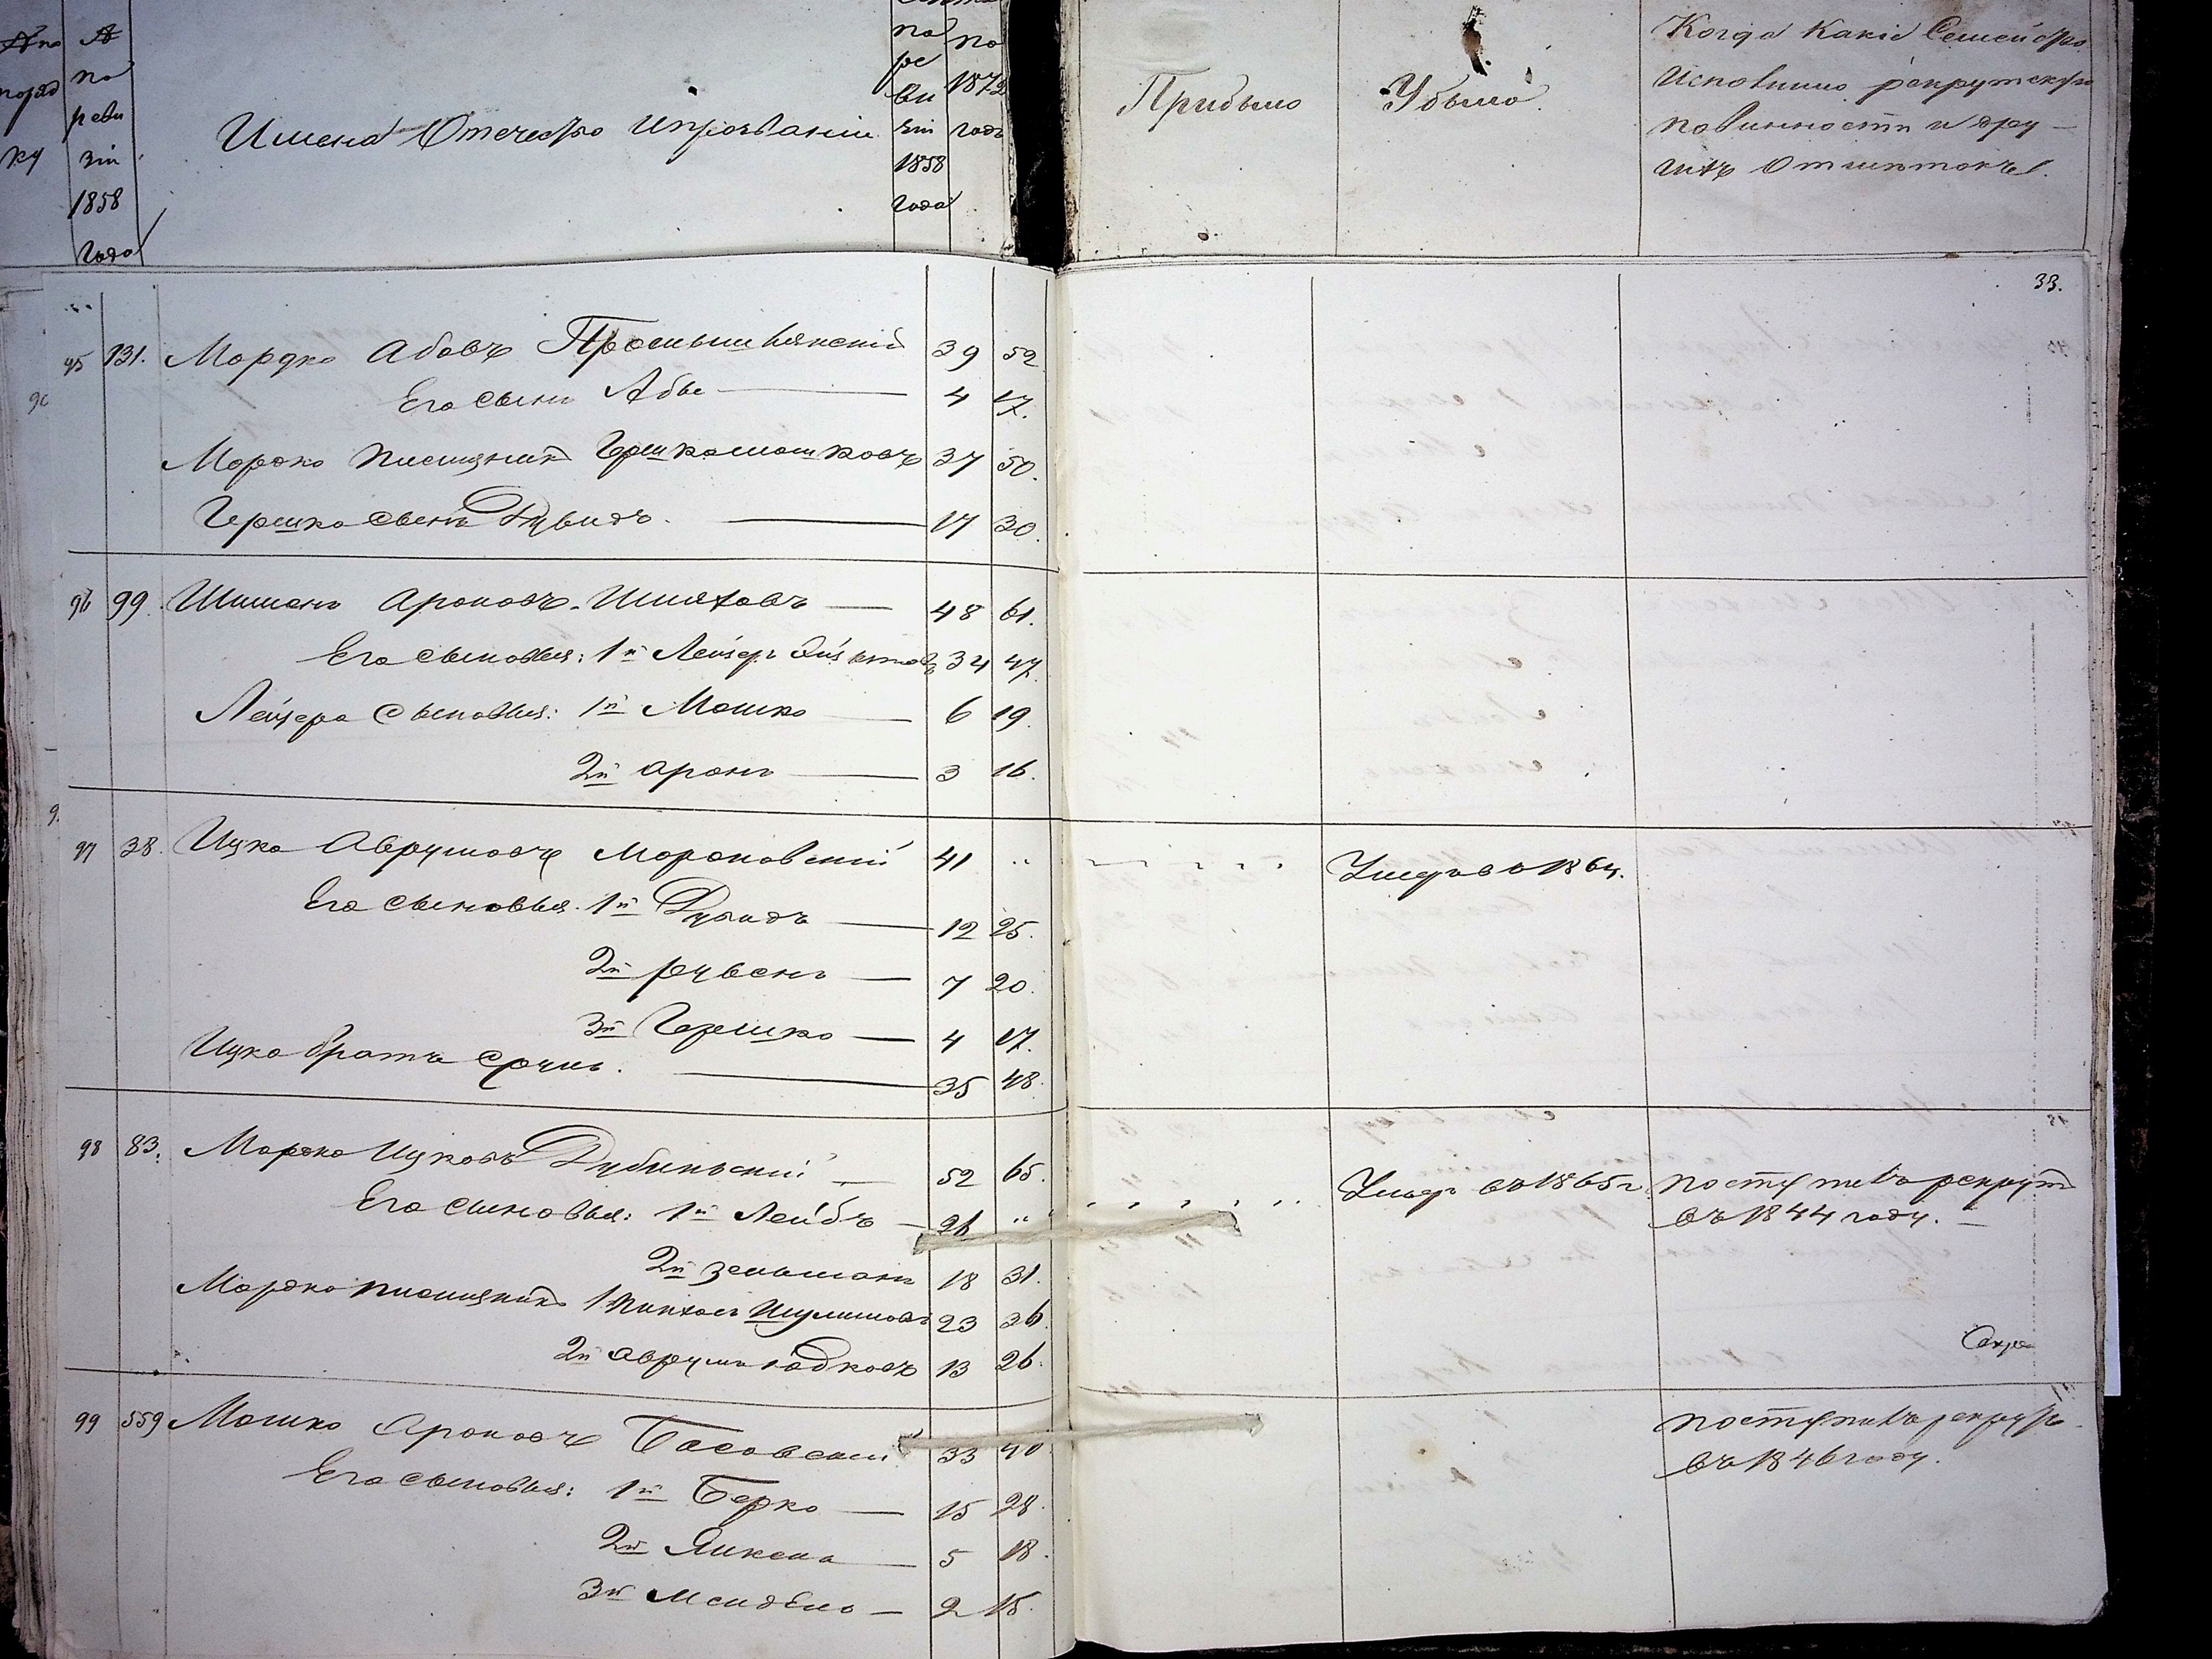 № по порядку
№ по ревизіи 1858 года
Имена Отчество и прозваніи
по ревизіи 1858 года
по 1872 годъ
Прибыло
Убыло
Когда какіе Семейство
исполнило рекрутскую
повинности и дру-
гихъ Отмѣтокъ
33.
95 131. Мордко Абовъ 39 52
Его сынъ Абы 4 17.
Мордко племянникъ Гершко Мошковъ 37 50.
Гершко сынъ Дувидъ. 17 30.
96 99. Шимонъ Ароновъ 48 61.
Его сыновья: 1й Лейзеръ 34 47.
Лейзера сыновья: 1й Мошко 6 19.
2й Аронъ 3 16.
97 38. Ицко Аврумовъ 41 „ Умеръ въ 1864.
Его сыновья. 1й Дувидъ 12 25.
2й Рувенъ 7 20.
3й Гершко 4 17.
Ицко братъ Сруль. 35 48.
98 83. Мордко Ицковъ Дубинскій 52 65.
Его сыновья: 1й Лейбъ 26 „ Умеръ въ 1865 г. поступилъ рекрут
въ 1844 году.
2й Зельманъ 18 31.
Мордко племянникъ 1 Пинхасъ Шулимовъ 23 36.
2й Аврумъ Юдковъ 13 26.
99 559 Мошко Ароновъ Басовскій 33
поступилъ рекрутъ
въ 1846 году.
Его сыновья: 1й Берко 15 28.
2й Янкель 5 18.
3й Мендель 2 15.